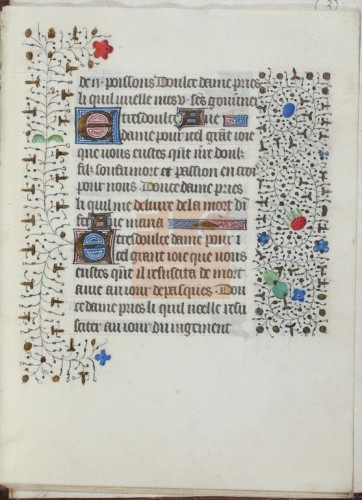 de ii. poissons Doulce dame pries
li quil vueille mes v. sens gouuerner
E tresdoulce Aue
dame pour icel grāt ioie
que vous eustes quāt nr̄e doulz
filz souffri mort et passion en croix
pour nous. Doulce dame pries
li quil me deliure de la mort dē
fer Aue maria
E tresdoulce dame pour i
cel grant ioie que vous
eustes quāt il resuscita de mort
a vie au iour de pasques. Doul
ce dame pries li quil noelle resu
sciter au iour du iugement